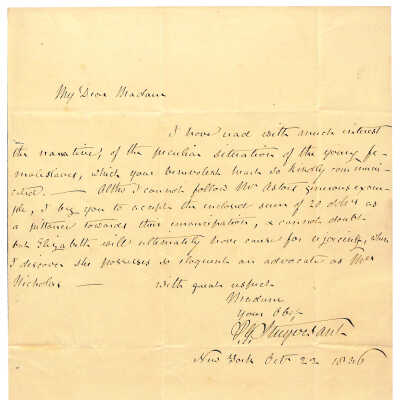 My Dear Madam
I have read with much interest
the narrative, of the peculiar situation of the young fe-
male slaves, which your benevolent heart so kindly communi-
cated. — Altho I cannot follow Mr Astor's generous exam-
ple, I beg you to accept the inclosed sum of 20 dolls as
a pittance towards their emancipation, & cannot doubt
but Elizabeth will ultimately have cause for rejoicing, when
I discover she possesses so eloquent an advocate as Mrs
Nicholas —
with great respect
Madam
Your Obt
Stuyvesant
New York Oct 22 1836